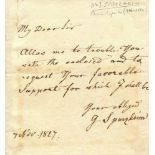 My Dear Sir
Allow me to trouble You
with the enclosed and to
request Your favorable
support for which I shall be
Your obliged
G
7 Nov. 1827.